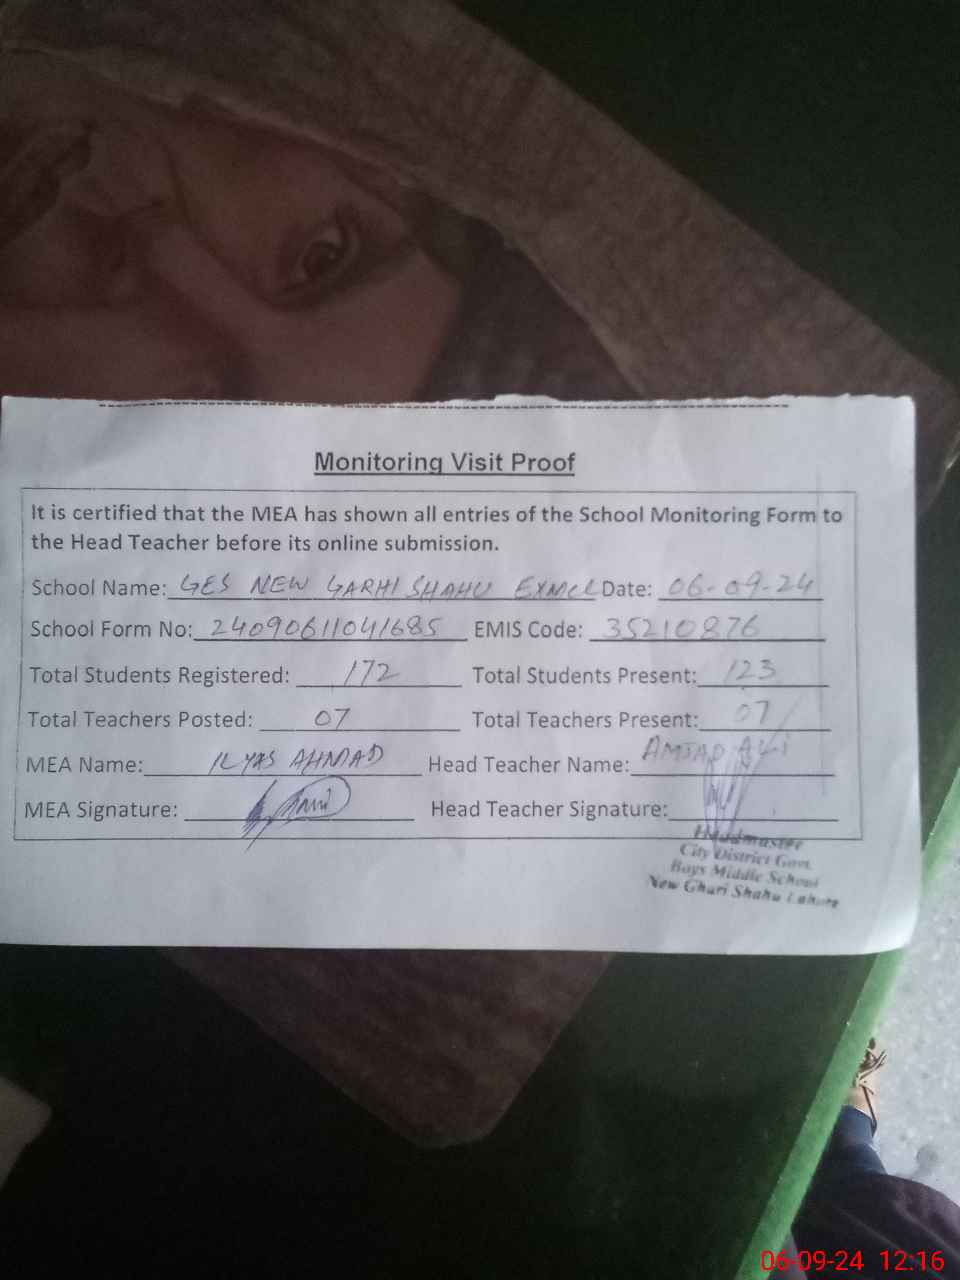 Monitoring Visit Proof
It is certified that the MEA has shown all entries of the School Monitoring Form to
the Head Teacher before its online submission.
School Name: GES NEW GARHI SHAHU Date: 06-09-24
School Form No: 24090611041685 EMIS Code: 35210876
Total Students Registered: 172 Total Students Present: 123
Total Teachers Posted: 07 Total Teachers Present: 07
MEA Name: ILYAS AHMAD Head Teacher Name: AMJAD ALI
MEA Signature: Head Teacher Signature:
Headmaster
City District Govt.
Boys Middle School
New Ghari Shahu Lahore
06-09-24 12:16